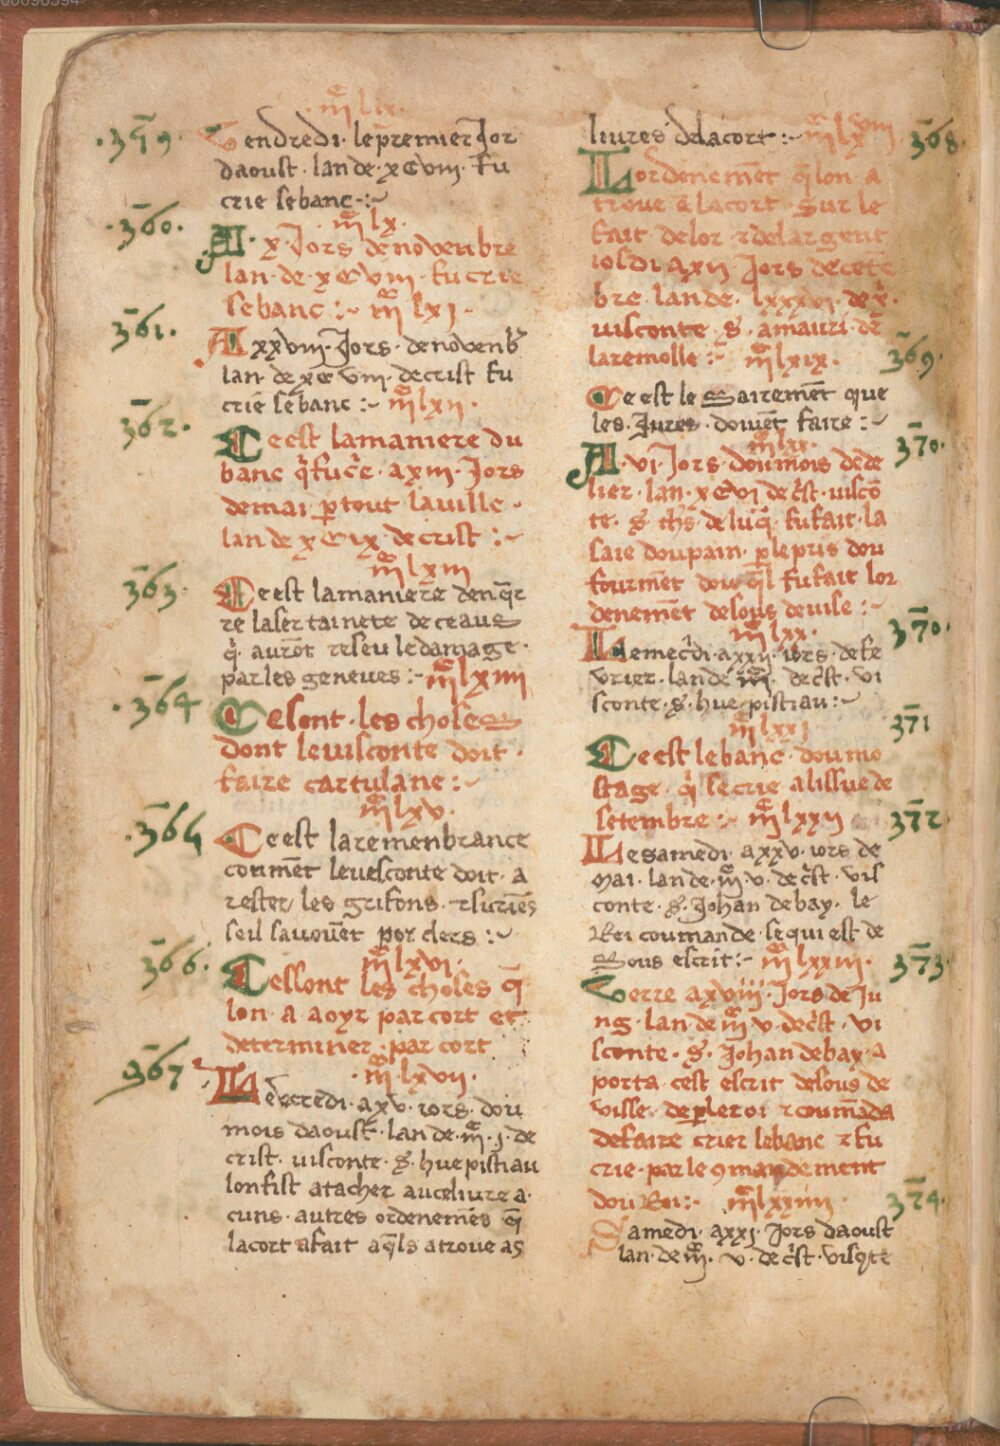 ·m̃ lix·
·3ꝯ9·
Vendredi· le premier Jor
daoust· lan de· xcviii· fu
crie lebanc·:~
·360·
m̃ lx·
A· x· Jors de novenbre
lan· de· xcviii· fu crie
lebanc :~ m̃ lxj·
361·
A xxviii· Jors· de novenb̃
lan· de xc viii· de crist fu
crie lebanc :~ m̃ lxii·
362·
Ce est la maniere du
banc q̃ fu c̃e· a xiii· Jors
de mai p̱ tout la ville·
lan de xc ix· de crist :~
m̃ lxiii
363·
Ce est la maniere den q̃r
re la sertainete de ceaus
q̃· auront reseu le damage·
par les geneves :~ m̃ lxiiii
·364
Ce sont· les choses
dont le visconte doit·
faire cartulane :~
m̃ lxv·
·365
Ce est la remenbrance
conmẽt levesconte doit· a
rester les grifons· ⁊ suriẽs
seil savouẽt por clers :~
366·
m̃ lxvi·
Ce ssont les choses q̃
lon· a aoyr par cort et
determiner· par cort
367
·m̃ lxvii·
Mecredi· a xv· iors· dou
mois daoust· lan de· m̃· j· de
crist· visconte· S· hue pistiau
lon fist atacher au celivre a·
cuns· autres ordenemẽs q̃
la cort a fait aq̃ls a trove as
livres de la cort :~ m̃ lxviii
368·
Lordenemẽt q̃ lon· a
trove ẽ la cort· sur le
fait de lor· ⁊ del argent
ioſdi a xii· Jors de cete
bre· lan de· lxxxvi· de x̃·
visconte· S· amauri· de
la remolle :~ m̃ lxix·
369·
Ce est le Sairemẽt que
les· Jures· doivẽt faire :~
m̃ lxx·
370·
A· vi· Jors· dou mois de de
lier· lan· xcvi de c̃st· viscõ
te· S· th̃s de luq̃· fu fait· la
saie dou pain· p̱ le pris dou
fourmẽt dou q̃l fu fait lor
denemẽt desous devise :~
m̃ lxx·
370·
Le mec̃di· a xxii· iors· de fe
vrier· lan de m̃· de c̃st· vi
sconte· S· hue pistiau :~
m̃ lxxj
371
Ce est lebanc· dou mo
stage· q̃ se crie a lissue de
setembre :~ m̃ lxxii
372
Le samedi· a xxv· iors de
Mai· lan de· m̃· v· de c̃st· vis
conte· S· Johan de bay· le
Rei coumande· se qui est de
Sous escrit :~ m̃ lxxiii·
373
Verre a xviii· Jors de Ju
ng· lan de m̃ v· de c̃st· vi
sconte· S· Johan de bay· a
porta· cest escrit desous de
visse· de p̱ le roi ⁊ coumãda
de faire crier lebanc ⁊ fu
crie· par le ꝯmandement
dou Roi :~ m̃ lxxiiii·
374·
Samedi· a xxj· Jors daoust
lan· de m̃· v· de c̃st· visꝯte